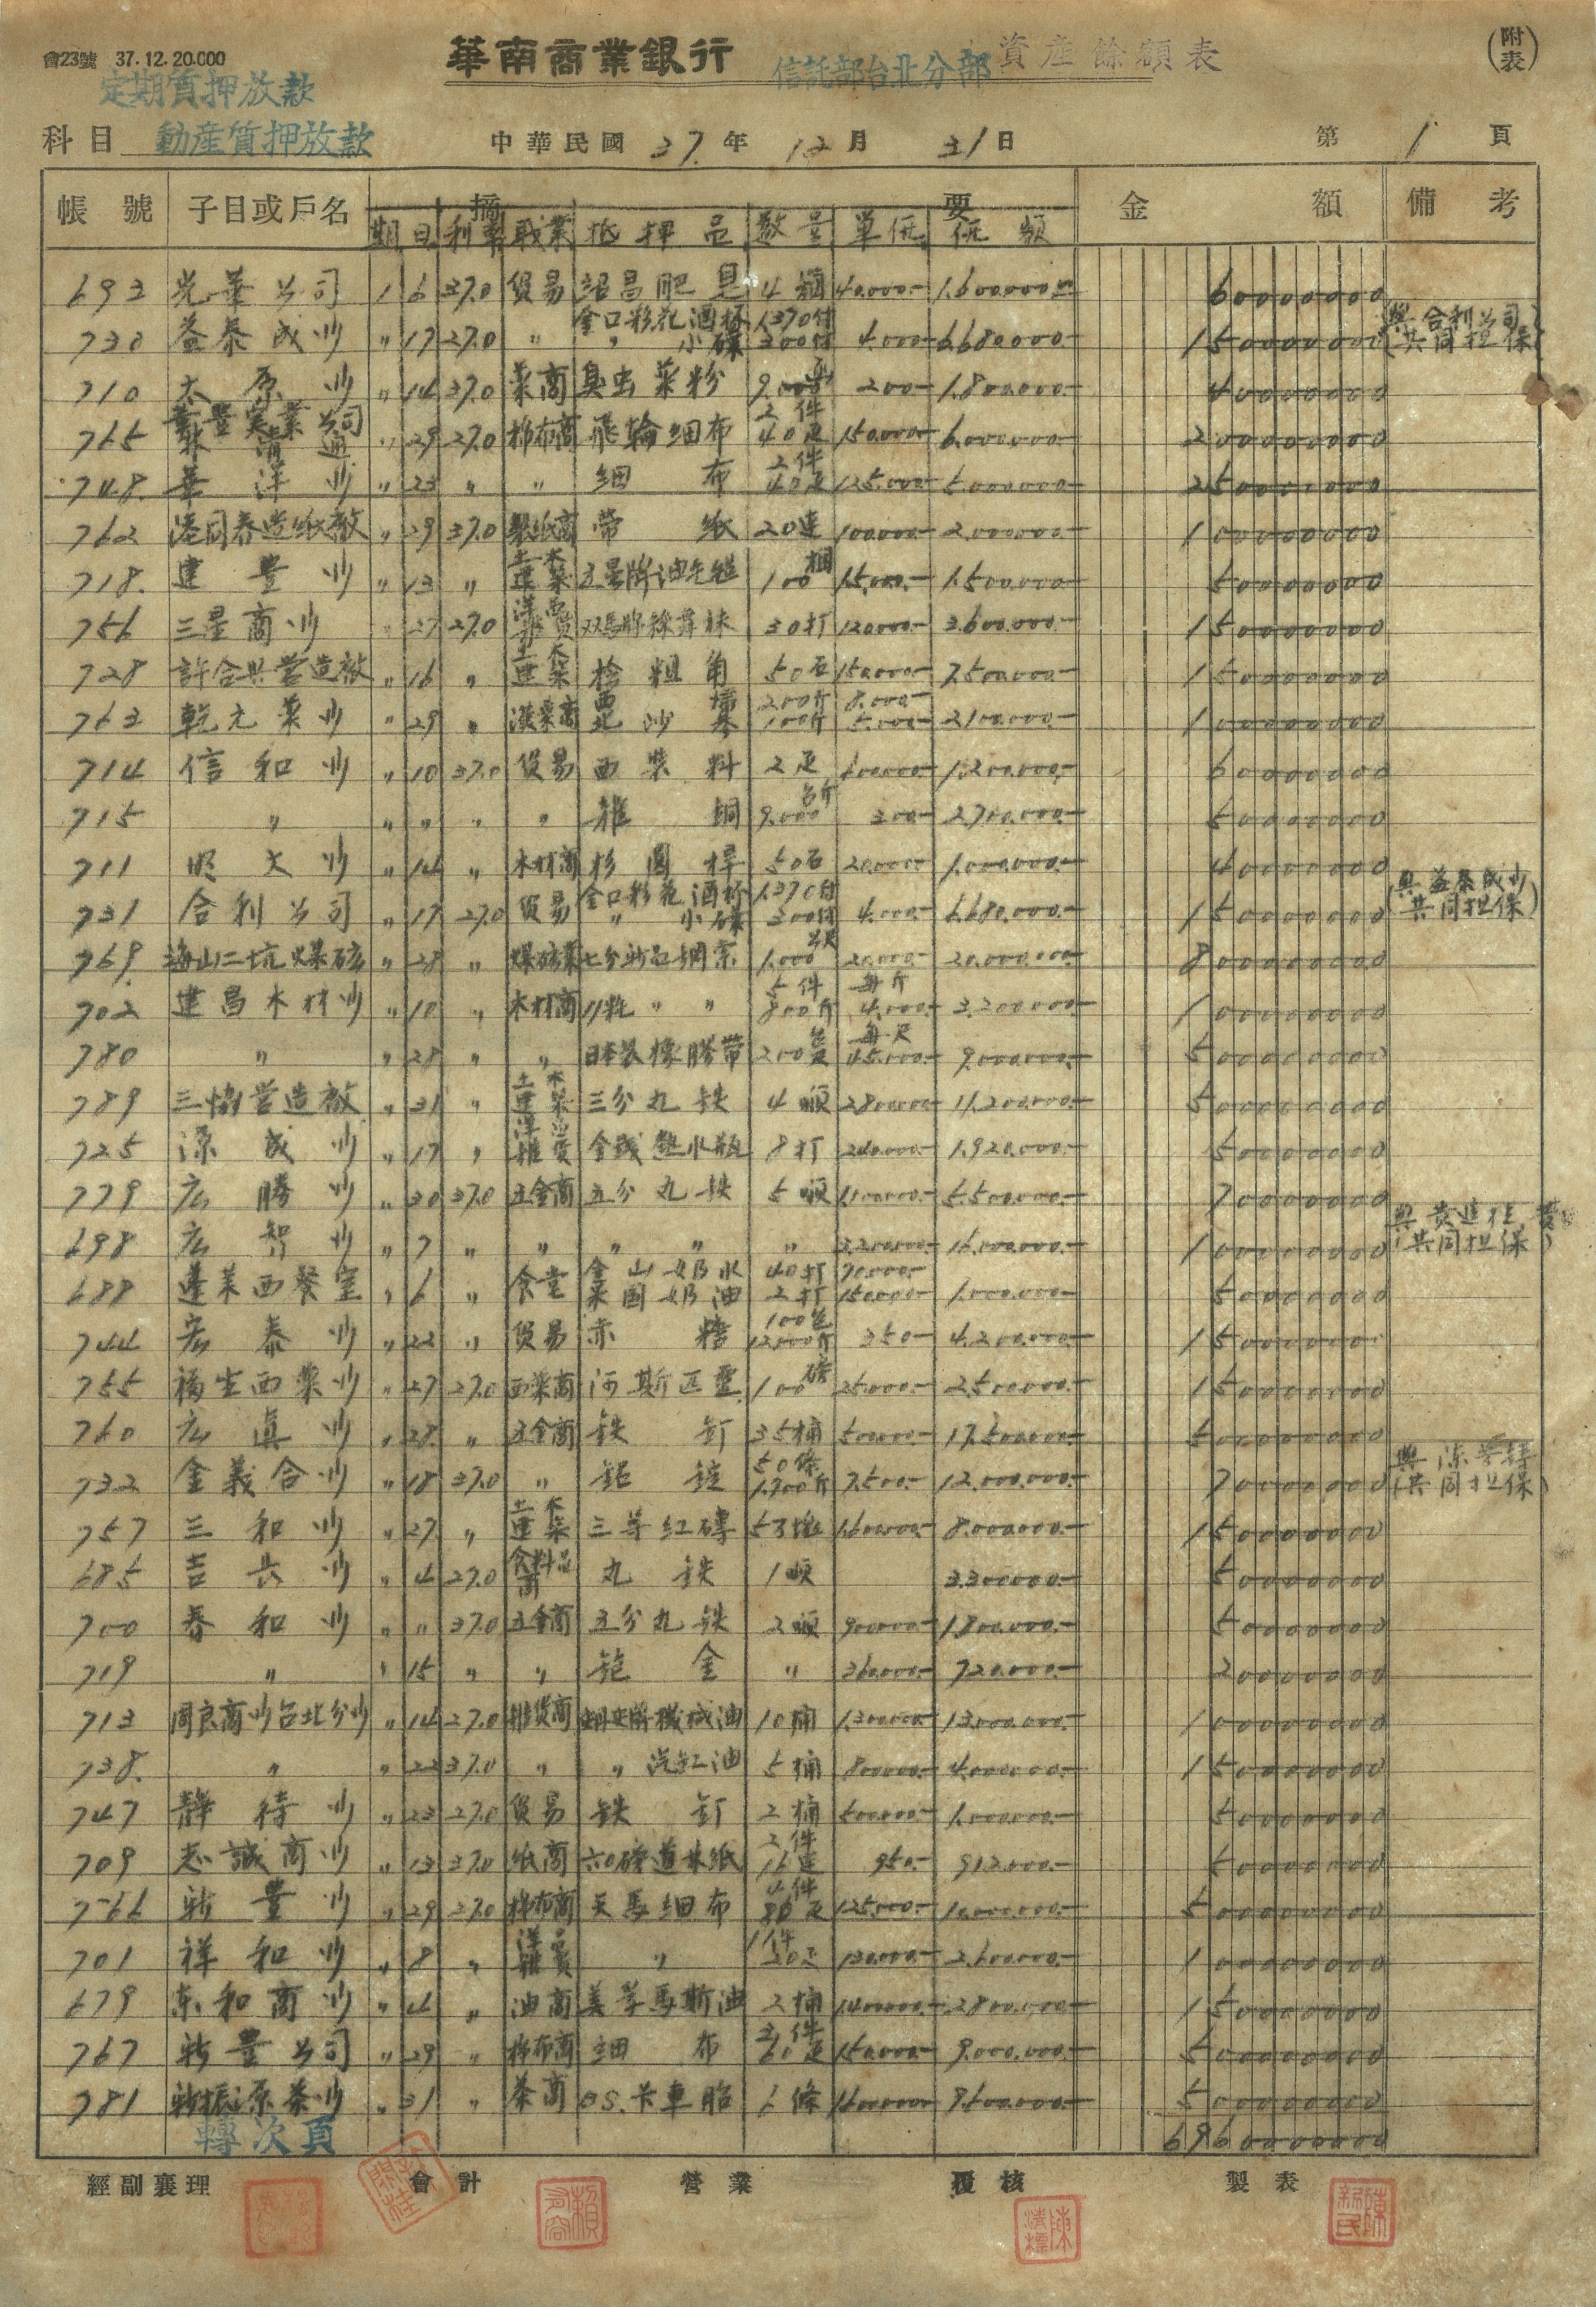 會23號 37.12.20.000
華南商業銀行 信託部台北分部 資產餘額表 (附表)
定期質押放款
科目 動產質押放款 中華民國 37.年 12月 31日 第 1 頁
帳號 子目或戶名 摘要 金額 備考
期日 利率 職業 抵押品 數量 單價 價額
693 光華公司 1 6 37.0 貿易 4 40.000.- 1.600.000.- 60000000 (與合利公司
730 益泰成行 〃 17 27.0 〃 金口彩花酒杯 〃 小碟 1.370付 300付 4.000.- 6.680.000.- 150000000 共同担保)
710 太原行 〃 14 37.0 藥商 臭虫藥粉 9.000 200.- 1.800.000.- 40000000
765 華豐実業公司 〃 29 27.0 棉布商 飛輪細布 2件 40疋 150.000.- 6.000.000.- 200000000
748. 華洋行 〃 23 〃 〃 細布 2件 40疋 125.000.- 5.000.000.- 250000000
762 港同春造紙廠 〃 29 37.0 製紙商 帶紙 20連 100.000.- 2.000.000.- 100000000
718. 建豐行 〃 13 〃 土木建築 100 15.000.- 1.500.000.- 50000000
756 三星商行 〃 27 27.0 洋品雜貨 30打 120.000.- 3.600.000.- 150000000
728 許合興營造廠 〃 16 〃 土木建築 檜粗角 50石 150.000.- 7.500.000.- 150000000
763 乾元藥行 〃 29 〃 漢藥商 200斤 100斤 8.000.- 5.000.- 2.100.000.- 100000000
714 信和行 〃 10 37.0 貿易 西裝料 2疋 600.000.- 1.200.000.- 60000000
715 〃 〃 〃 〃 〃 雜銅 9.000台斤 300.- 2.700.000.- 50000000
711 明大行 〃 14 〃 木材商 杉圓 50石 20.000.- 1.000.000.- 40000000 (與益泰成行
731 合利公司 〃 17 27.0 貿易 金口彩花酒杯 〃 小碟 1.370付 300付 4.000.- 6.680.000.- 150000000 共同担保)
769. 海山二坑煤礦 〃 28 〃 煤礦業 七分新品鋼索 1.000公尺 20.000.- 20.000.000.- 800000000
702 建昌木材行 〃 10 〃 木材商 〃 〃 5件 800斤 每斤 4.000.- 3.200.000.- 100000000
780 〃 〃 28 〃 〃 日本製橡膠帶 200 每尺 45.000.- 9.000.000.- 500000000
789 三協營造廠 〃 31 〃 土木建築 三分丸鉄 4噸 2.800.000.- 11.200.000.- 500000000
725 源成行 〃 17 〃 洋品雜貨 金錢熱水瓶 8打 240.000.- 1.920.000.- 50000000
779 広勝行 〃 30 37.0 五金商 五分丸鉄 5噸 1.100.000.- 5.500.000.- 70000000
698 広智行 〃 7 〃 〃 〃 〃 〃 3.200.000.- 16.000.000.- 100000000 (共同担保)
688 蓬萊西餐室 〃 6 〃 食堂 金山奶水 菓園奶油 40打 2打 150.000.- 1.000.000.- 50000000
744 宏泰行 〃 22 〃 貿易 赤糖 100包 12.000斤 350.- 4.200.000.- 150000000
755 福生西藥行 〃 27 27.0 西藥商 阿斯匹靈 100磅 25.000.- 2.500.000.- 150000000
760 広真行 〃 28. 〃 五金商 鉄釘 35桶 500.000.- 17.500.000.- 500000000
732 金義合行 〃 18 37.0 〃 鋁錠 50條 7.500.- 12.000.000.- 70000000 (共同担保)
757 三和行 〃 27. 〃 土木建築 三等紅磚 5万塊 1.600.000.- 8.000.000.- 150000000
685 吉長行 〃 4 27.0 食料品商 丸鉄 1噸 3.300.000.- 50000000
700 春和行 〃 〃 37.0 五金商 五分丸鉄 2噸 900.000.- 1.800.000.- 50000000
719 〃 〃 15 〃 〃 〃 360.000.- 720.000.- 20000000
713 周良商行台北分行 〃 14 27.0 雜貨商 機械油 10桶 1.300.000.- 13.000.000.- 100000000
738. 〃 〃 23 37.0 〃 〃 汽缸油 5桶 800.000.- 4.000.000.- 150000000
747 靜待行 〃 23 27.0 貿易 鉄釘 2桶 500.000.- 1.000.000.- 50000000
709 志誠商行 〃 13 37.0 紙商 六〇磅道林紙 2件 16連 950.- 912.000.- 50000000
766 新豐行 〃 29 27.0 棉布商 天馬細布 4件 80疋 125.000.- 10.000.000.- 500000000
701 祥和行 〃 8 〃 洋品雜貨 〃 1件 20疋 130.000.- 2.600.000.- 100000000
679 東和商行 〃 4 〃 油商 美孚馬斯油 2桶 1.400.000.- 2.800.000.- 150000000
767 新豐公司 〃 29 〃 棉布商 細布 3件 60疋 150.000.- 9.000.000.- 500000000
781 新振源茶行 〃 31 〃 茶商 O.S.卡車胎 6條 1.600.000.- 9.600.000.- 500000000
轉次頁 6960000000
經副襄理 會計 營業 覆核 製表
陳清標 陳新民